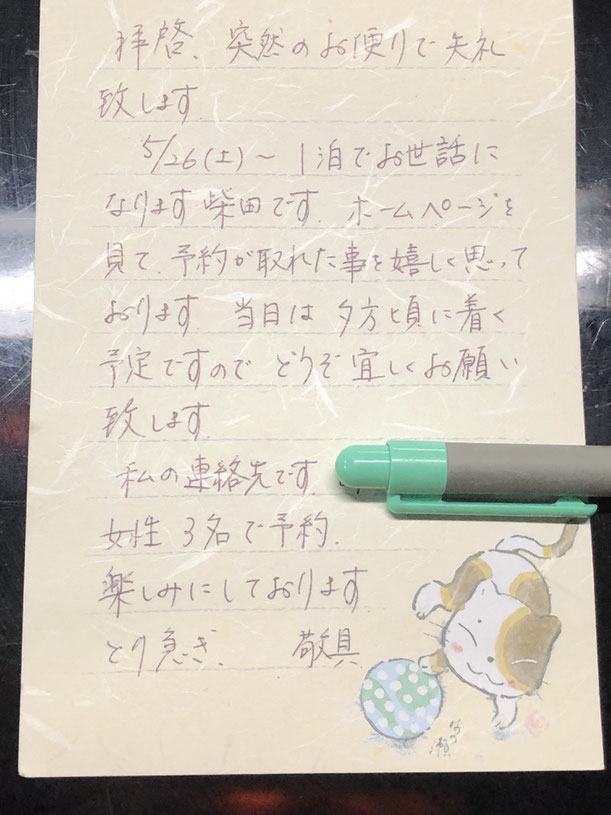 拝啓、突然のお便りで失礼
致します.
5/26(土)〜1泊でお世話に
なります柴田です. ホームページを
見て、予約が取れた事を嬉しく思って
おります. 当日は夕方頃に着く
予定ですので どうぞ宜しくお願い
致します.
私の連絡先です.
女性3名で予約.
楽しみにしております.
とり急ぎ. 敬具.